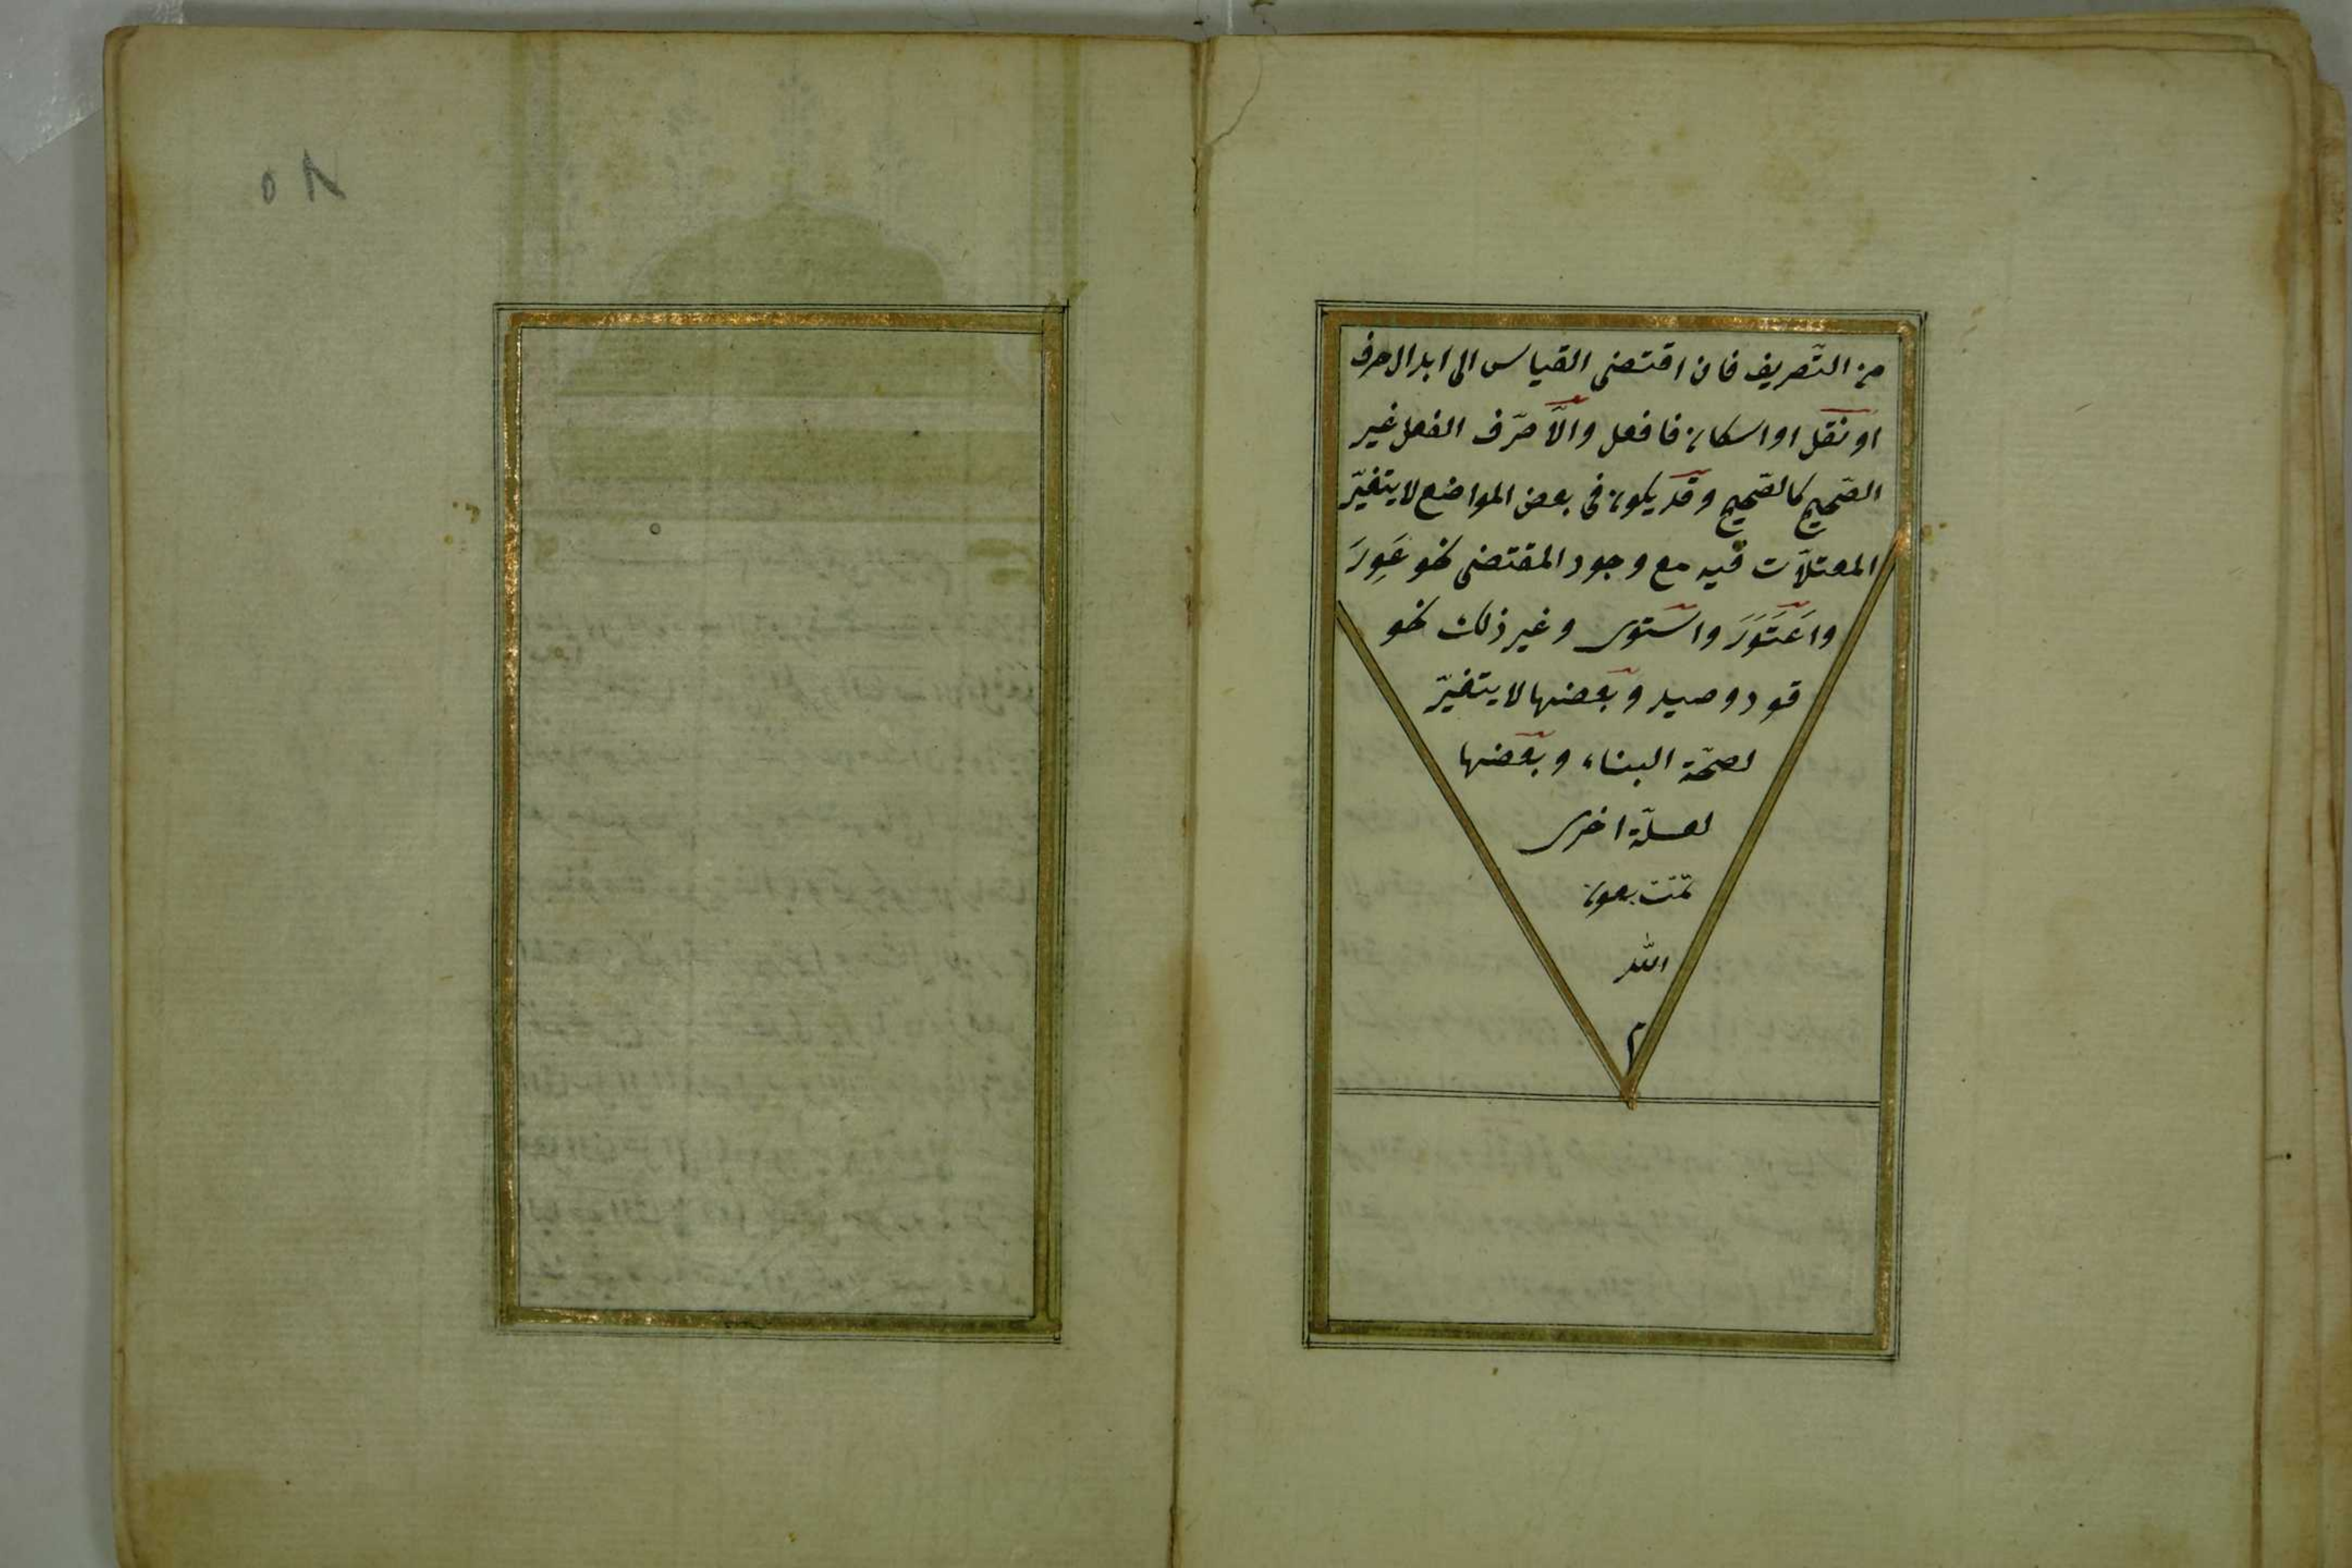 من التّصريف فان اقتضى القياس الى ابدال حرف
او نقل او اسكان فافعل والّا صرّف الفعل غير
الصّحيح كالصّحيح وقد يكون فى بعض المواضع لا يتغيّر
المعتلّات فيه مع وجود المقتضى نحو عَوِرَ
واعْتَوَرَ واستوى وغير ذلك نحو
قود وصيد وبعضها لا يتغيّر
لصحّة البناء وبعضها
لعلّة اخرى
تمّت بعون
الله
م
٥٨